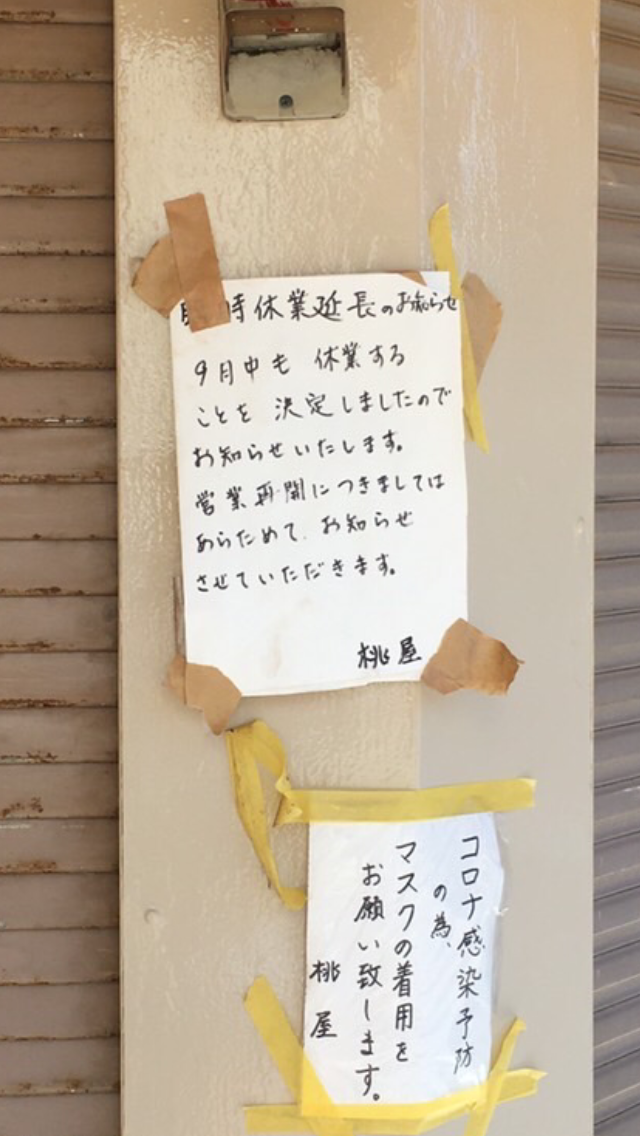 臨時休業延長のお知らせ
9月中も 休業する
ことを 決定しましたので
お知らせいたします。
営業再開につきましては
あらためて、お知らせ
させていただきます。
桃屋
コロナ感染予防
の為、
マスクの着用を
お願い致します。
桃屋